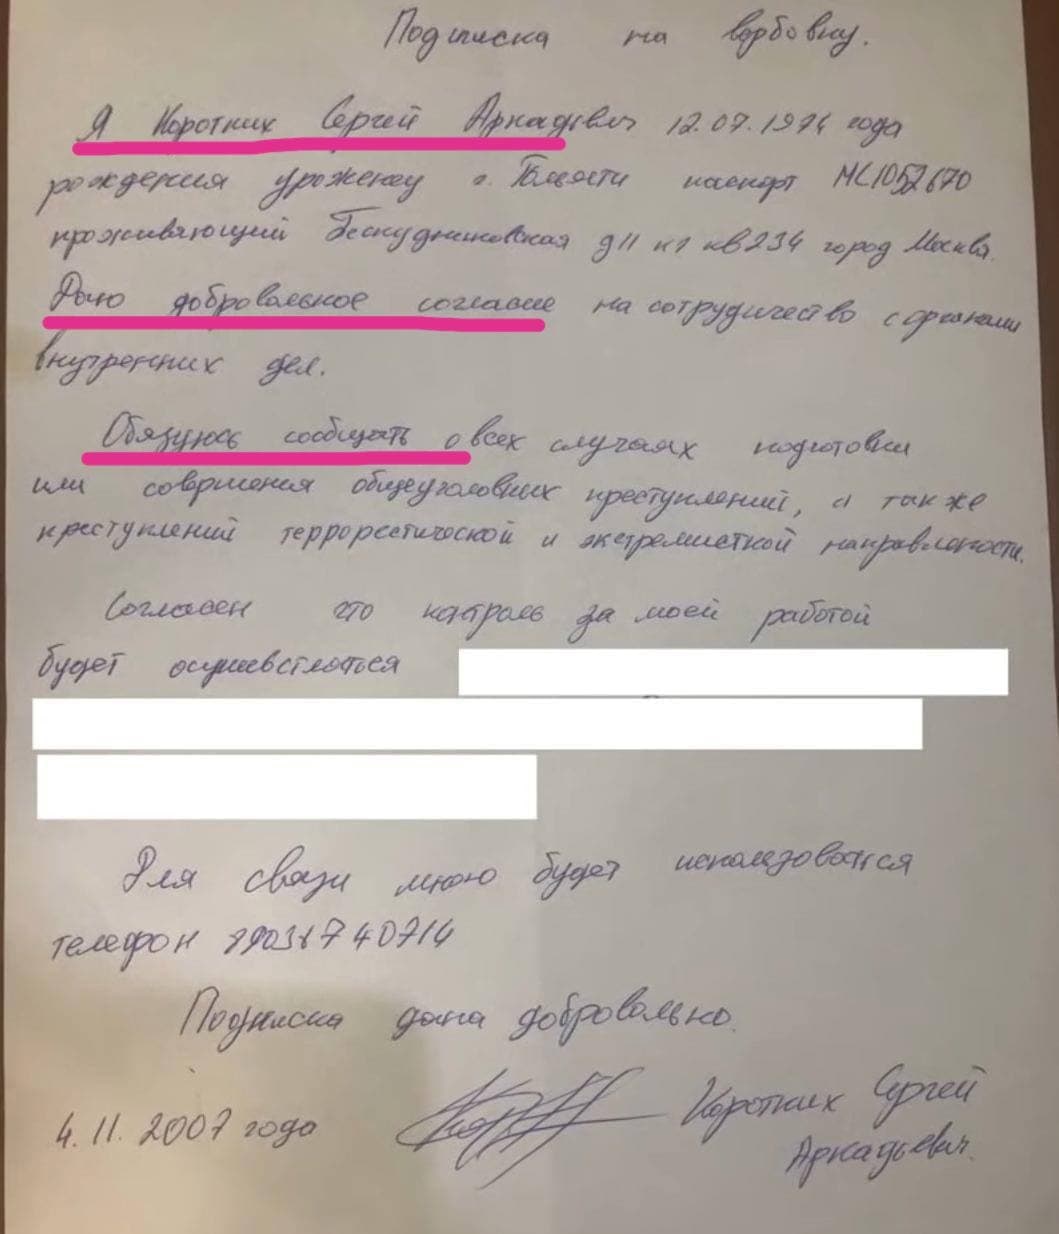 Подписка на вербовку.
Я Коротких Сергей Аркадьевич 12.07.1974 года
рождения уроженец г. Тольятти паспорт МС1052670
проживающий Бескудниковская д11 к1 кв234 город Москва.
Даю добровольное согласие на сотрудичество с органами
внутренних дел.
Обязуюсь сообщать о всех случаях подготовки
или совершения общеуголовных преступлений, а также
преступлений террорестической и экстремисткой направлености.
Согласен что контроль за моей работой
будет осуществляться
Для связи мною будет использоваться
телефон 740714
Подписка дана добровольно.
4.11.2007 года Коротких Сергей
Аркадьевич.